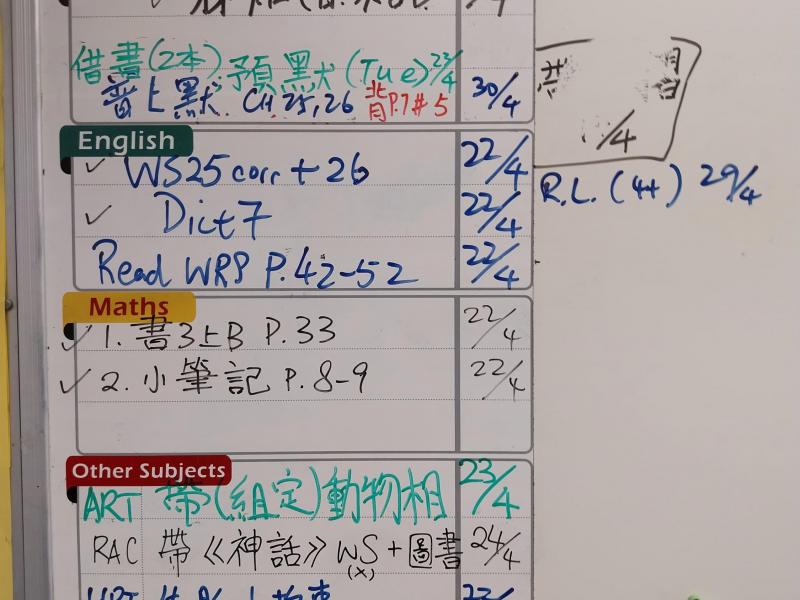 借書(2本) 預默(Tue) 23/4
普上默 CH 25,26 背P.7#5 30/4
English
✓ WS25 corr + 26 22/4
✓ Dict 7 22/4
Read WRP P.42-52 22/4
R.L. (44) 29/4
Maths
✓ 1. 書3上B P.33 22/4
✓ 2. 小筆記 P.8-9 22/4
Other Subjects
ART 帶(組定)動物相 23/4
RAC 帶《神話》WS + 圖書 24/4
(x)